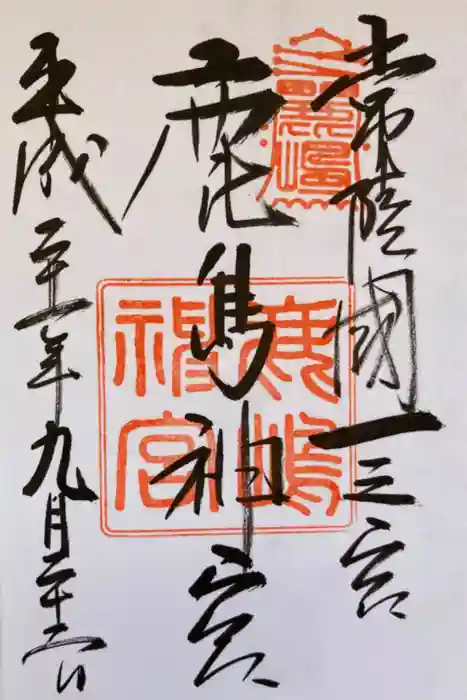 常陸國一之宮
鹿島神宮
平成二十一年九月二十二日
鹿嶋
神宮